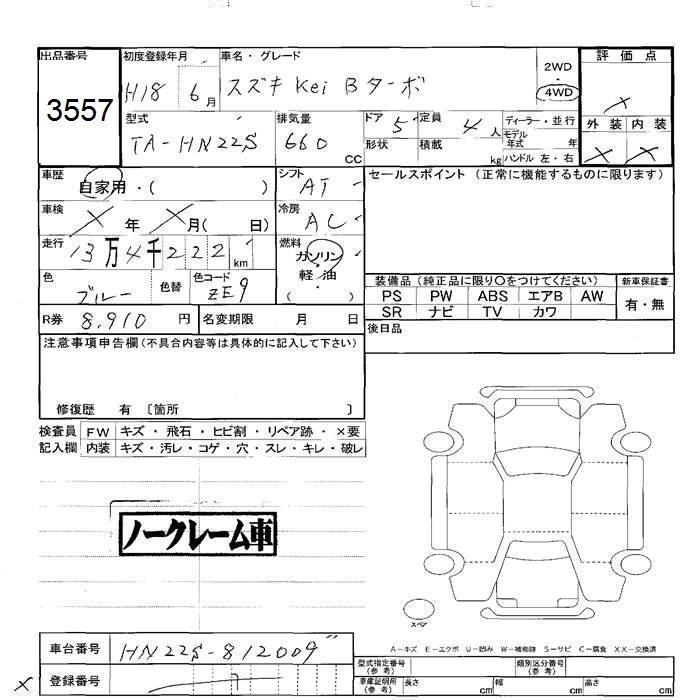 出品番号 初度登録年月 車名・グレード 2WD ・ 4WD 評価点
3557 H18 6月 スズキ Kei Bターボ ×
型式 排気量 ドア 5 定員 4人 ディーラー・並行 外装 内装
TA-HN22S 660 CC 形状 積載 kg モデル年式 年 × ×
ハンドル 左・右
車歴 自家用・( ) シフト AT セールスポイント (正常に機能するものに限ります)
車検 × 年 × 月( 日) 冷房 AC
走行 13万4千222km 燃料 ガソリン・軽油 ( )
色 ブルー 色替 色コード ZE9 装備品 (純正品に限り○をつけてください) 新車保証書
PS PW ABS エアB AW 有・無
R券 8,910 円 名変期限 月 日 SR ナビ TV カワ
後日品
注意事項申告欄 (不具合内容等は具体的に記入して下さい)
修復歴 有 〔箇所 〕
検査員 FW キズ・飛石・ヒビ割・リペア跡・×要
記入欄 内装 キズ・汚レ・コゲ・穴・スレ・キレ・破レ
ノークレーム車
スペア
A-キズ E-エクボ U-凹み W-補修跡 S-サビ C-腐食 XX-交換済
車台番号 HN22S-812009
型式指定番号 (参考) 類別区分番号 (参考)
× 登録番号
車庫証明用 (参考) 長さ cm 幅 cm 高さ cm